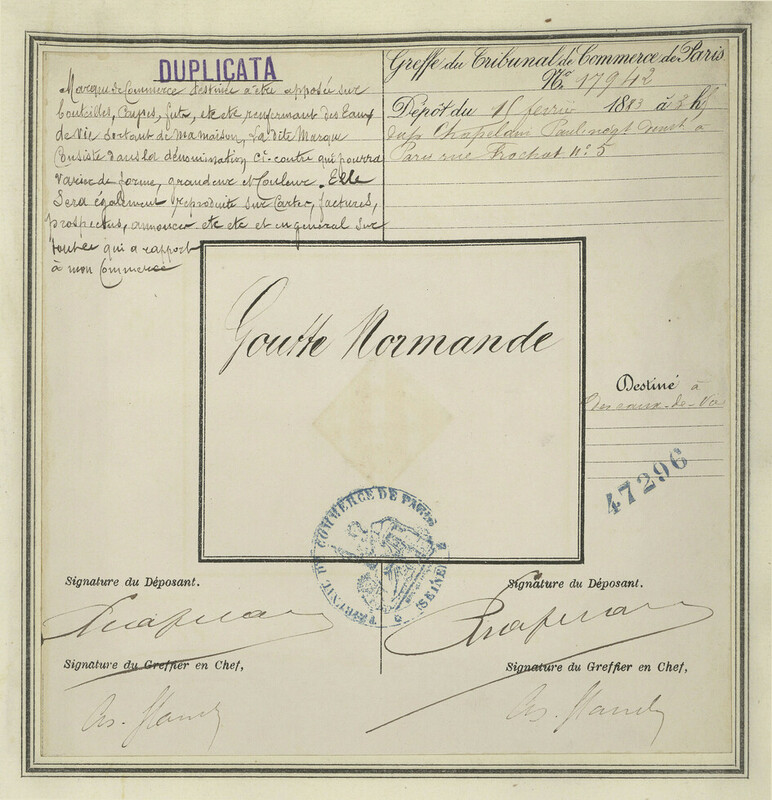 DUPLICATA
Marque de Commerce destinée à être apposée sur
bouteilles, Caisses, futs, etc etc renfermant des Eaux
de Vie sortant de ma maison, La dite Marque
Consiste dans la dénomination ci-contre qui pourra
varier de forme, grandeur et Couleur. Elle
Sera également reproduite sur Cartes, factures,
prospectus, annonces etc etc et en général sur
tout ce qui a rapport
à mon Commerce
Greffe du Tribunal de Commerce de Paris
No. 17942
Dépôt du 15 février 18 à 3 h
Chapelain
Paris rue Frochot n° 5
Goutte Normande
Destiné à
des eaux-de-Vie
47296
TRIBUNAL DE COMMERCE DE PARIS
(SEINE)
Signature du Déposant.
Signature du Déposant.
Signature du Greffier en Chef,
Signature du Greffier en Chef,